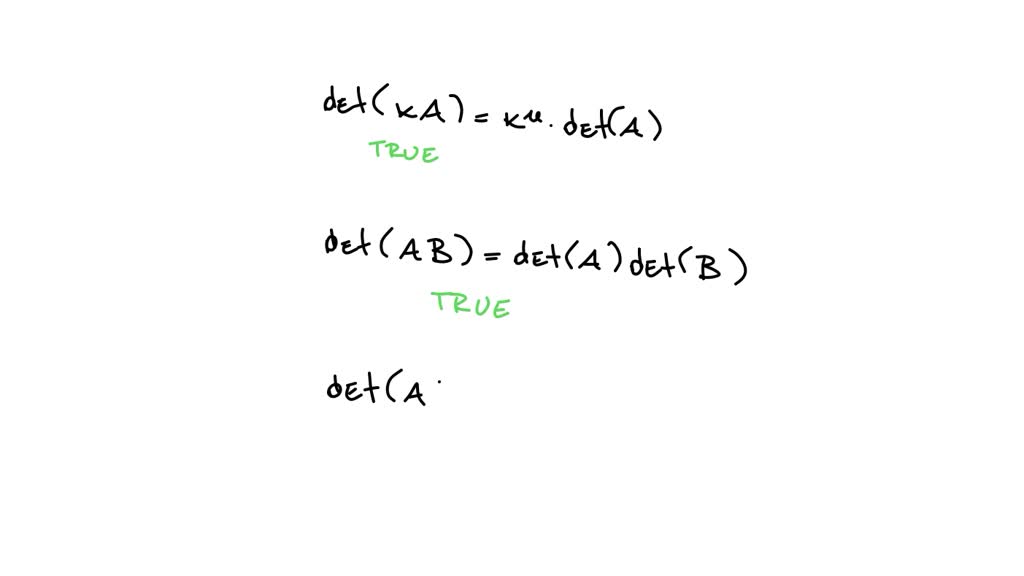 det(kA) = kⁿ · det(A)
TRUE
det(AB) = det(A) det(B)
TRUE
det(A